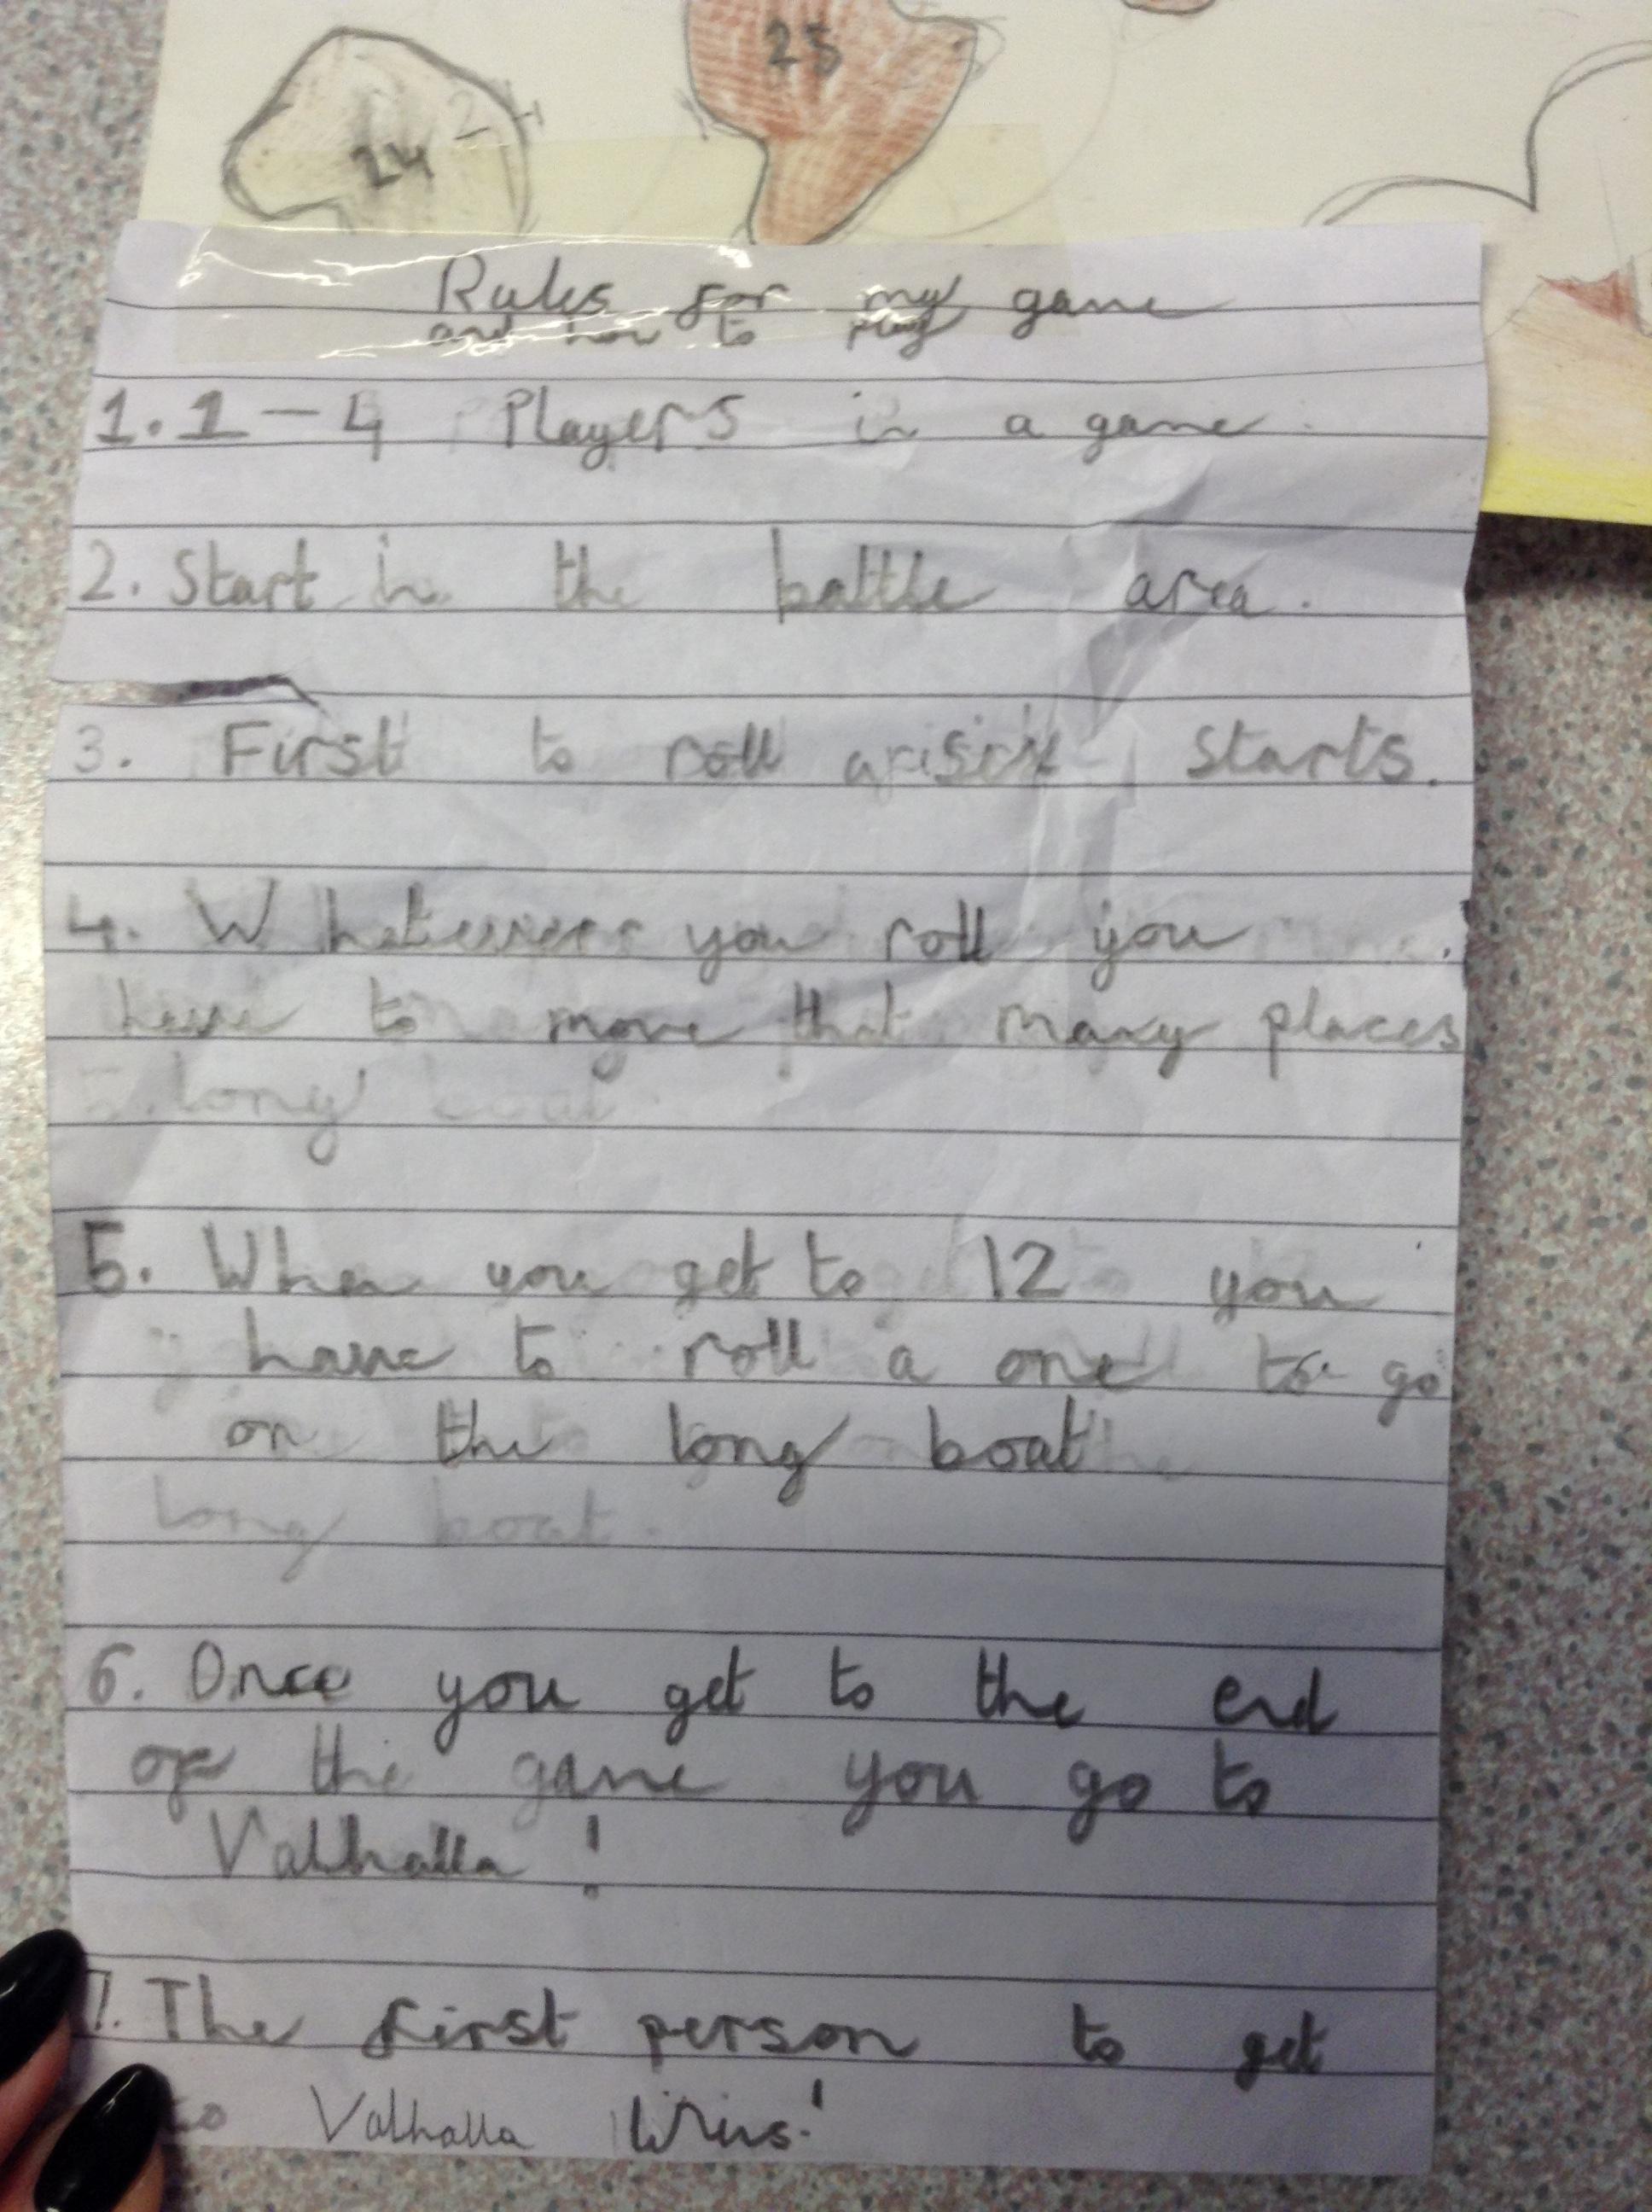 25
24
24
Rules for my game
and how to play
1. 1 – 4 Players in a game.
2. Start in the battle area.
3. First to roll a starts.
4. Whatever you roll you
have to move that many places
long boat
5. When you get to 12 you
have to roll a one to go
on the long boat
long boat.
6. Once you get to the end
of the game you go to
Valhalla!
7. The first person to get
to Valhalla Wins!